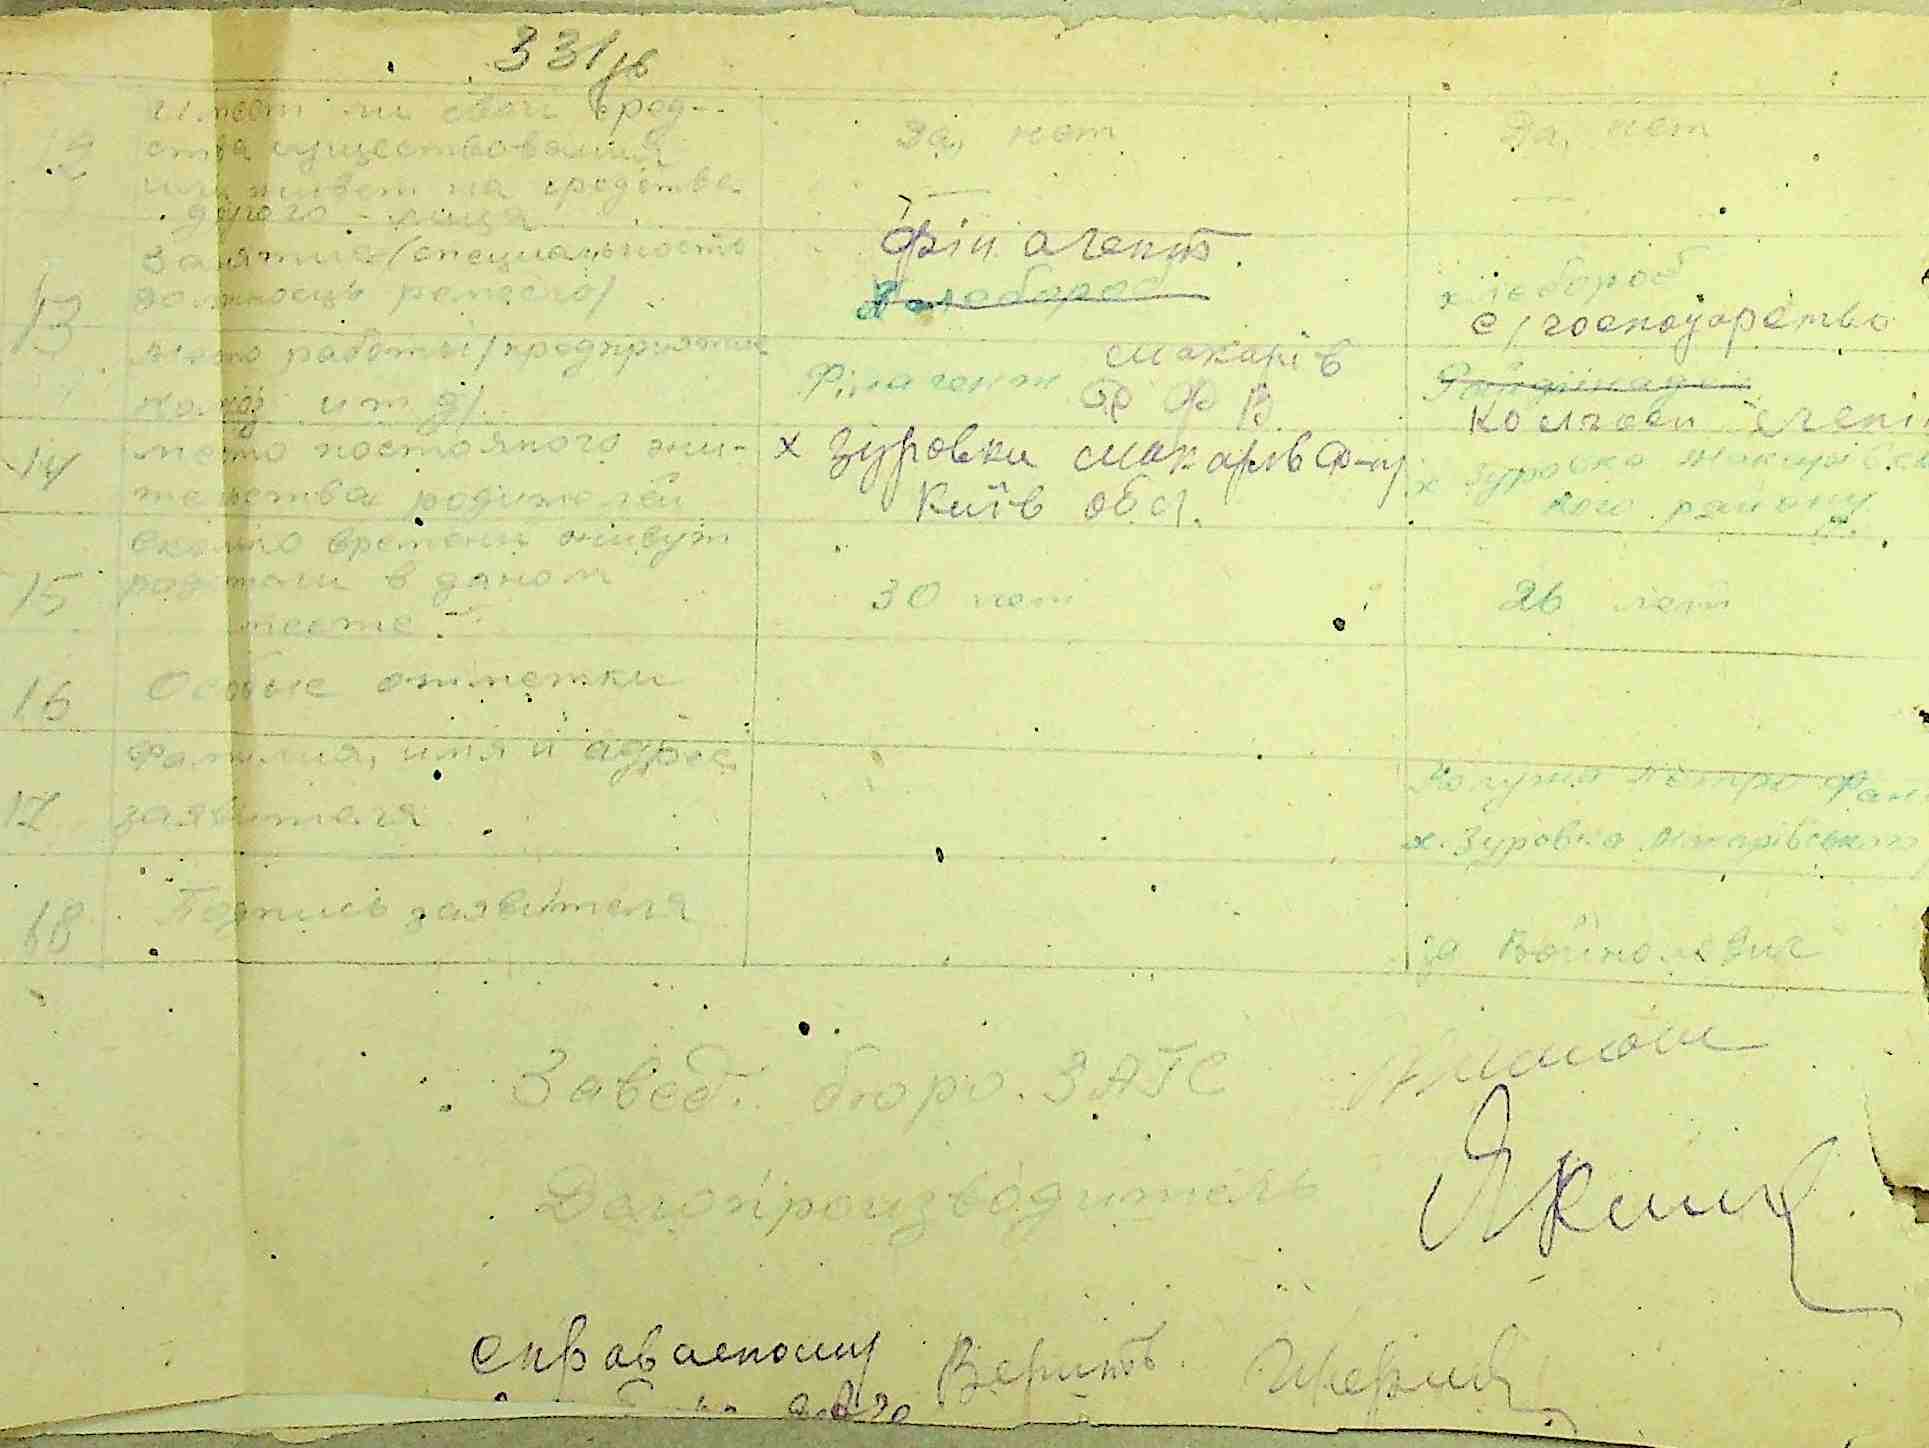 331
12 Имеет ли свои сред-
ства существования
или живет на средства
другого лица
Да, нет
Да, нет
13 Занятие (специальность
должность ремесло/
Фін агент.
Хлебороб
хлебороб
с/господарство
место работы/предприятие
колхоз и т д/
Фінагент Макарів
Р Ф В
колгосп
14 место постоянного жи-
тельства родителей
х Зуровки Макарів р-ну
Київ обл.
х Зуровка Макарівсь
кого району
15 сколько времени живут
родители в даном
месте
30 лет
26 лет
16 Особые отметки
17 Фамилия, имя и адрес
заявителя
Петро
х. Зуровка Макарівського
18 Подпись заявителя
за Войнолович
Завед. бюро ЗАГС
Делопроизводитель
справленому